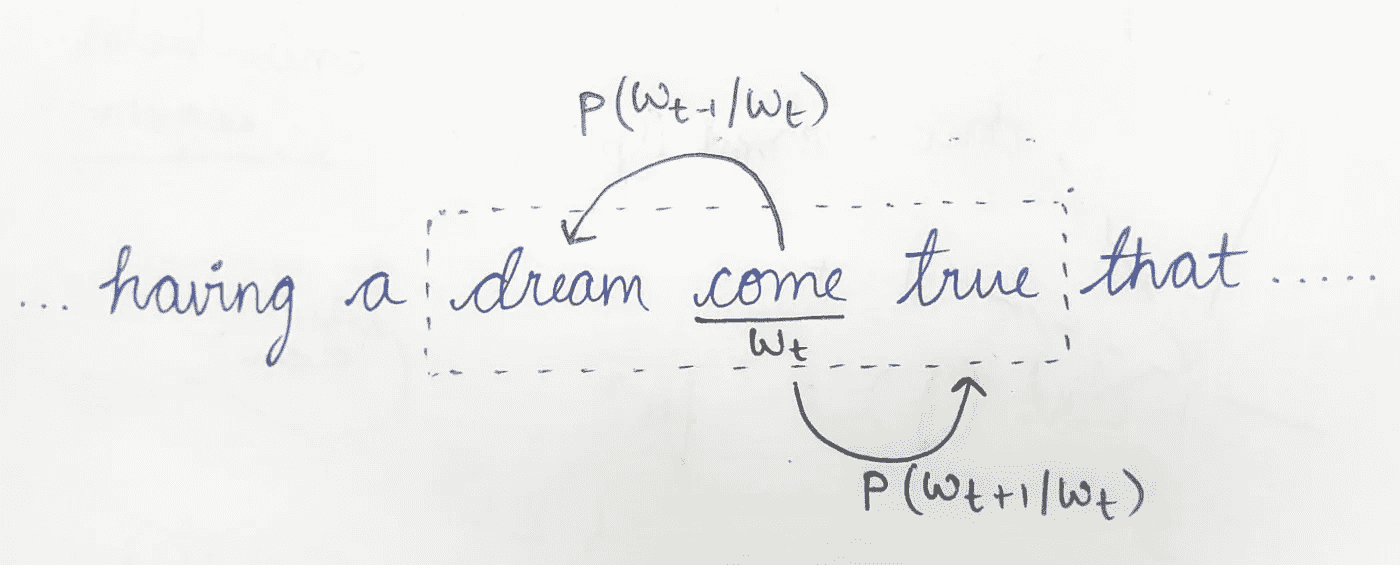 P(Wt-1/Wt)
... having a dream come true that .....
Wt
P(Wt+1/Wt)